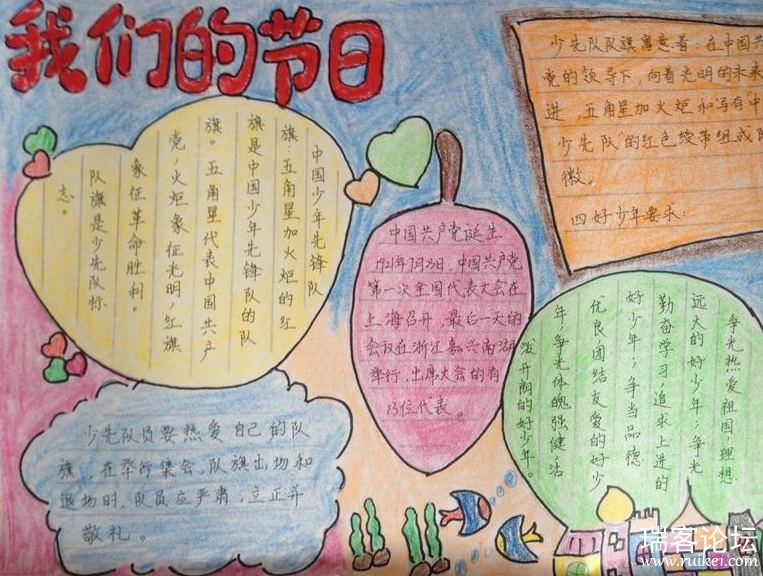 我们的节日
中国少年先锋队
旗：五角星加火炬的红
旗是中国少年先锋队的队
旗。五角星代表中国共产
党，火炬象征光明，红旗
象征革命胜利。
队旗是少先队标
志。
少先队员要热爱自己的队
旗，在举行集会，队旗出场和
退场时，队员应严肃，立正并
敬礼。
中国共产党诞生
1921年7月23日，中国共产党
第一次全国代表大会在
上海召开，最后一天的
会议在浙江嘉兴南湖
举行，出席大会的有
13位代表。
少先队队旗寓意着：在中国共
党的领导下，向着光明的未来
进，五角星加火炬和写有“中
少先队”的红色绶带组成队
徽。
四好少年要求：
争光热爱祖国，理想
远大的好少年；争光
勤奋学习，追求上进的
好少年；争当品德
优良，团结友爱的好少
年；争光体魄强健，活
泼开朗的好少年。
瑞客论坛
www.ruike1.com